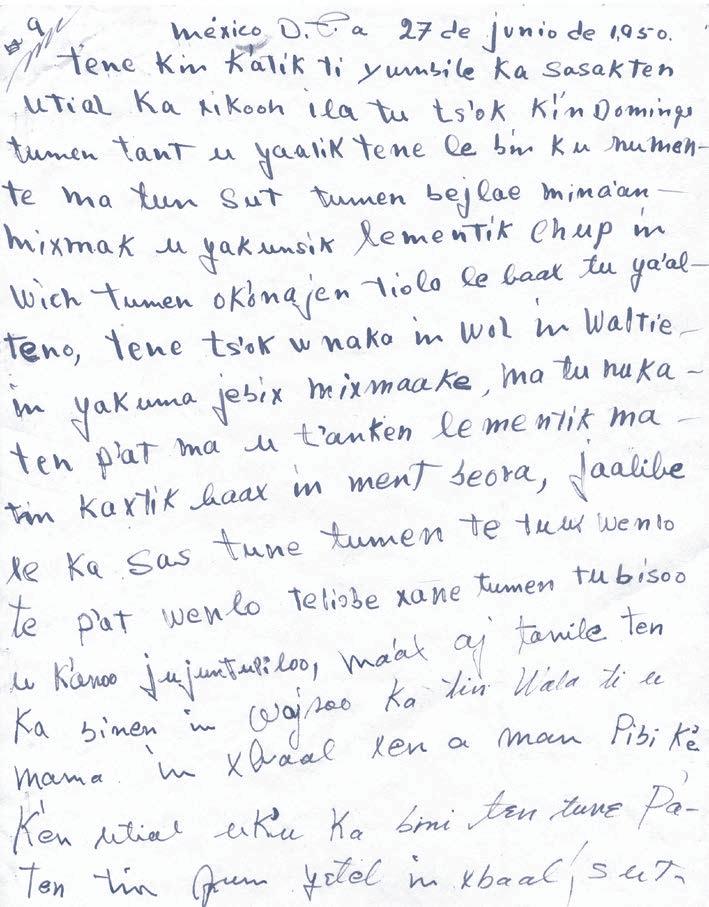 9
México D.F. a 27 de junio de 1,950.
Tene kin k'atik ti yumbile ka sasakten
utial ka xikoon ila tu ts'ok k'in Domingo
tumen tant u yaalik tene le bin ku numen-
te ma tun sut tumen bejlae mina'an-
mixmak u yakunsik lementik chup in
wich tumen ok'onajen tiolo le baax tu ya'al-
teno, tene ts'ok u naka in wol in waltie-
in yakuma jebix mixmaake, ma tu nuka-
ten p'at ma u t'anken lementik ma-
tin kaxtik baax in ment beora, jaalibe
le ka sas tune tumen te tuux wenlo
te p'at wenlo teliobe xane tumen tubisoo
u k'anoo jujuntuliloo, maax aj tanile ten
ka binen in wajsoo ka tin wala ti u
mama in xbaal xen a man Pibi k'e
k'en utial uk'u ka bini ten tune Pa-
ten tin yetel in xbaal, sut-